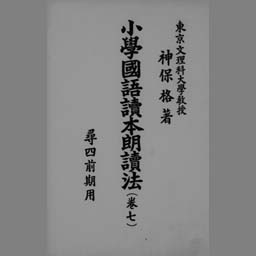 東京文理科大學敎授
神保格著
小學國語讀本朗讀法(卷七)
尋四前期用